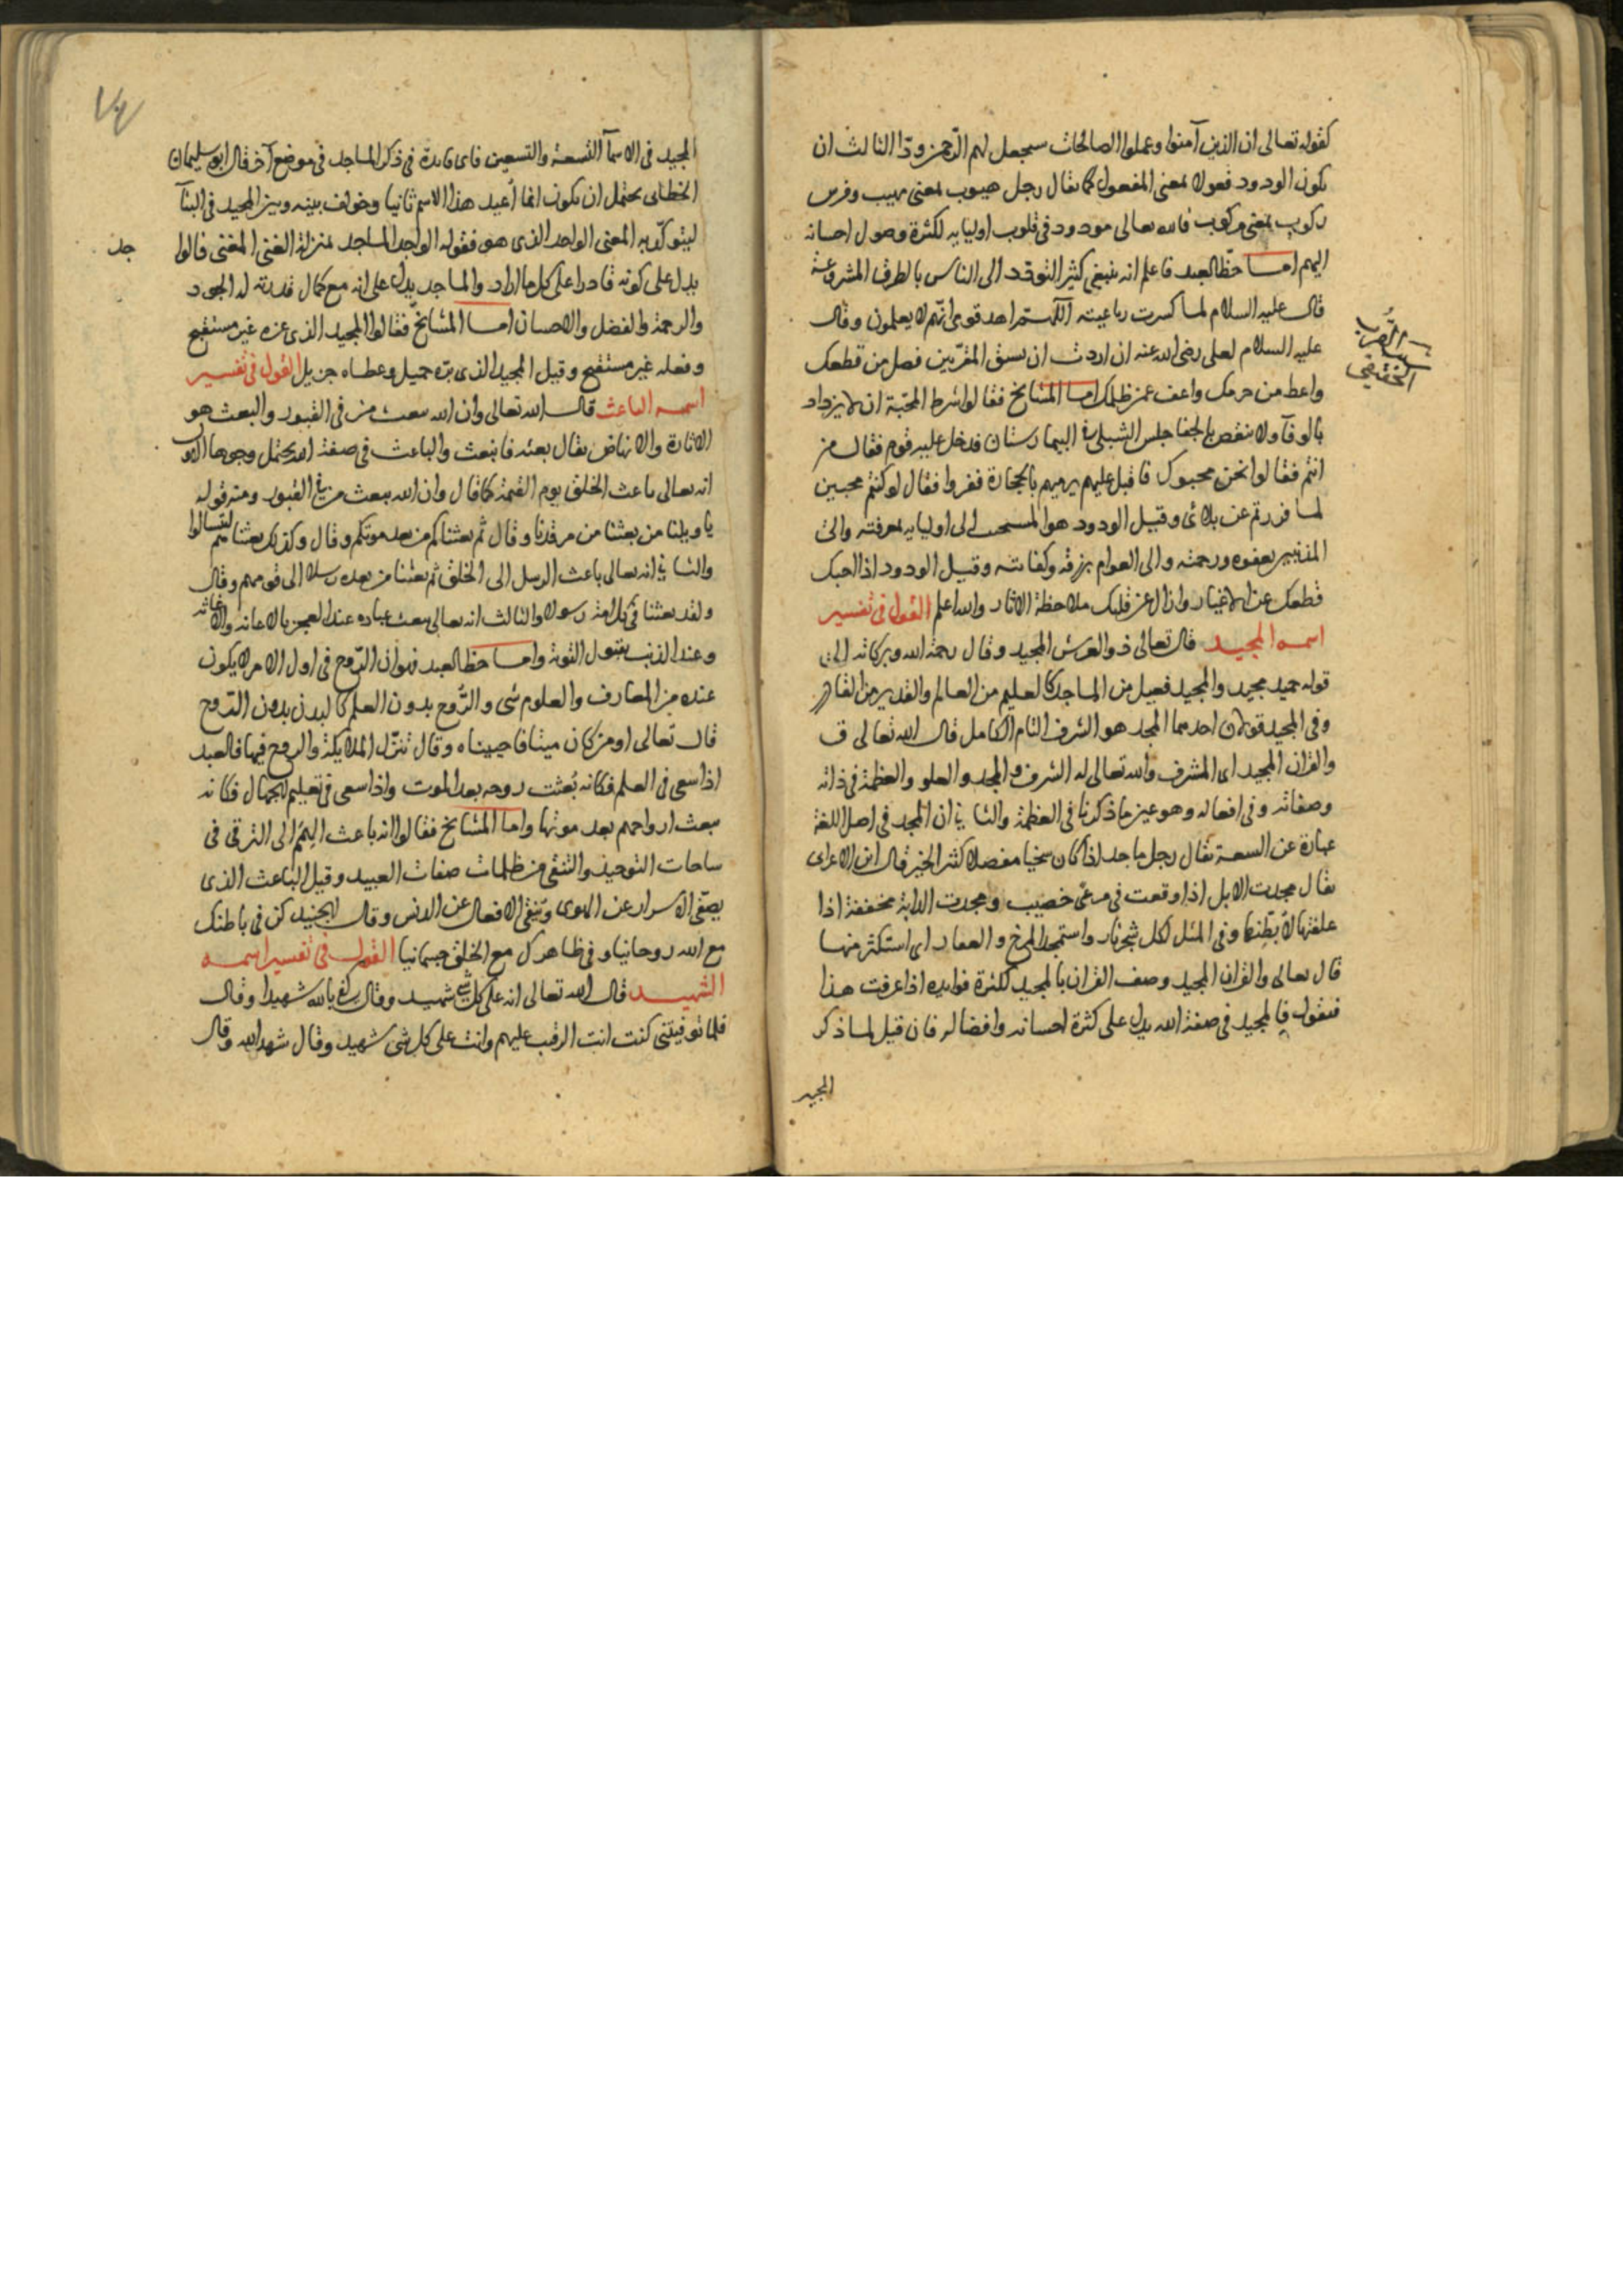 كقوله تعالى ان الذين آمنوا وعملوا الصالحات سيجعل لهم الرّحمن ودّا الثالث ان
يكون الودود فعولا بمعنى المفعول كما يقال رجل هيوب بمعنى مهيب وفرس
ركوب بمعنى مركوب فالله تعالى مودود في قلوب اوليايه لكثرة وصول احسانه
اليهم امــا حظ العبد فاعلم انه ينبغي كثير التودد الى الناس بالطرق المشروعة
قال عليه السلام لما كسرت رباعيته اللهم اهد قومى انّهم لا يعلمون وقال
عليه السلام لعلى رضى الله عنه ان اردت ان تسبق المقرّبين فصل من قطعك
واعط من حرمك واعف عمن ظلمك امــا المشايخ فقالوا شرط المحبّة ان لا يزداد
بالوفآ ولا ينقص بالجفا جلس الشبلى فى البيمارستان فدخل عليه قوم فقال من
انتم فقالوا نحن محبوك فاقبل عليهم يرميهم بالحجارة ففروا فقال لو كنتم محبين
لما فررتم عن بلائى وقيل الودود هو المتحبب الى اوليايه بمعرفته والى
المذنبين بعفوه ورحمته والى العوام برزقه وكفايته وقيل الودود اذا احبك
قطعك عن الاغيار وازال عن قلبك ملاحظة الاثار والله اعلم القول فى تفسير
اسمه المجيد قال تعالى ذو العرش المجيد وقال رحمة الله وبركاته الى
قوله حميد مجيد والمجيد فعيل من الماجد كالعليم من العالم والقدير من القادر
وفى المجيد قولان احدهما المجد هو الشرف التام الكامل قال الله تعالى ق
والقران المجيد اى المشرف والله تعالى له الشرف والمجد والعلو والعظمة فى ذاته
وصفاته وفى افعاله وهو عين ما ذكرنا فى العظمة والثانى ان المجد فى اصل اللغة
عبارة عن السعة يقال رجل ماجد اذا كان سخيا مفضلا كثير الخير قال ابن الاعرابى
يقال مجدت الابل اذا وقعت فى مرعى خصيب ومجدت الدابة مخففة اذا
علفتها لا بطنها وفى المثل لكل شجر نار واستمجد المرخ والعفار اى استكثر منها
قال تعالى والقران المجيد وصف القران بالمجيد لكثرة فوايده اذا عرفت هذا
فنقول المجيد فى صفة الله يدل على كثرة احسانه وافضاله فان قيل لما ذكر
المجيد
المجيد فى الاسمآ التسعة والتسعين فاى فايدة فى ذكر الماجد فى موضع آخر قال ابو سليمان
الخطابى يحتمل ان يكون انما اُعيد هذا الاسم ثانيا وخولف بينه وبين المجيد فى البنآ
ليتوكّد به المعنى الواحد الذى هو فقوله الواجد الماجد بمنزلة الغنى المغنى قالوا
جد
يدل على كونه قادرا على كل ما اراد والماجد يدل على انه مع كمال قدرته له الجود
والرحمة والفضل والاحسان امــا المشايخ فقالوا المجيد الذى عزه غير مستقبح
وفعله غير مستقبح وقيل المجيد الذى برّه جميل وعطاه جزيل القول فى تفسير
اسمه الباعث قال الله تعالى وان الله يبعث من فى القبور والبعث هو
الاثارة والانهاض يقال بعثه فانبعث والباعث فى صفة الله يحتمل وجوها الاول
انه تعالى باعث الخلق يوم القيمة كما قال وان الله يبعث من فى القبور ومنه قوله
يا ويلنا من بعثنا من مرقدنا وقال ثم بعثناكم من بعد موتكم وقال وكذلك بعثناهم ليتسالوا
والثانى انه تعالى باعث الرسل الى الخلق ثم بعثنا من بعده رسلا الى قومهم وقال
ولقد بعثنا فى كل امة رسولا والثالث انه تعالى يبعث عباده عند العجز بالاعانة والاغاثه
وعند الذنب بقبول التوبة وامــا حظ العبد فهو ان الرّوح فى اول الامر لا يكون
عنده من المعارف والعلوم شى والرُّوح بدون العلم كالبدن بدون الرّوح
قال تعالى اومن كان ميتا فاحييناه وقال تنزّل الملايكة والروح فيها فالعبد
اذا سعى فى العلم فكانه بُعثت روحه بعد الموت واذا سعى فى تعليم الجهال فكانه
يبعث ارواحهم بعد موتها وامــا المشايخ فقالوا انه باعث الهمم الى الترقى فى
ساحات التوحيد والتنقى من ظلمات صفات العبيد وقيل الباعث الذى
يصفّى الاسرار عن الهوى وينقّى الافعال عن الدنس وقال الجنيد كن فى باطنك
مع الله روحانيا وفى ظاهرك مع الخلق جسمانيا القول فى تفسير اسمه
الشهيد قال الله تعالى انه على كل شى شهيد وقال وكفى بالله شهيدا وقال
فلما توفيتنى كنت انت الرقيب عليهم وانت على كل شى شهيد وقال شهد الله وقال